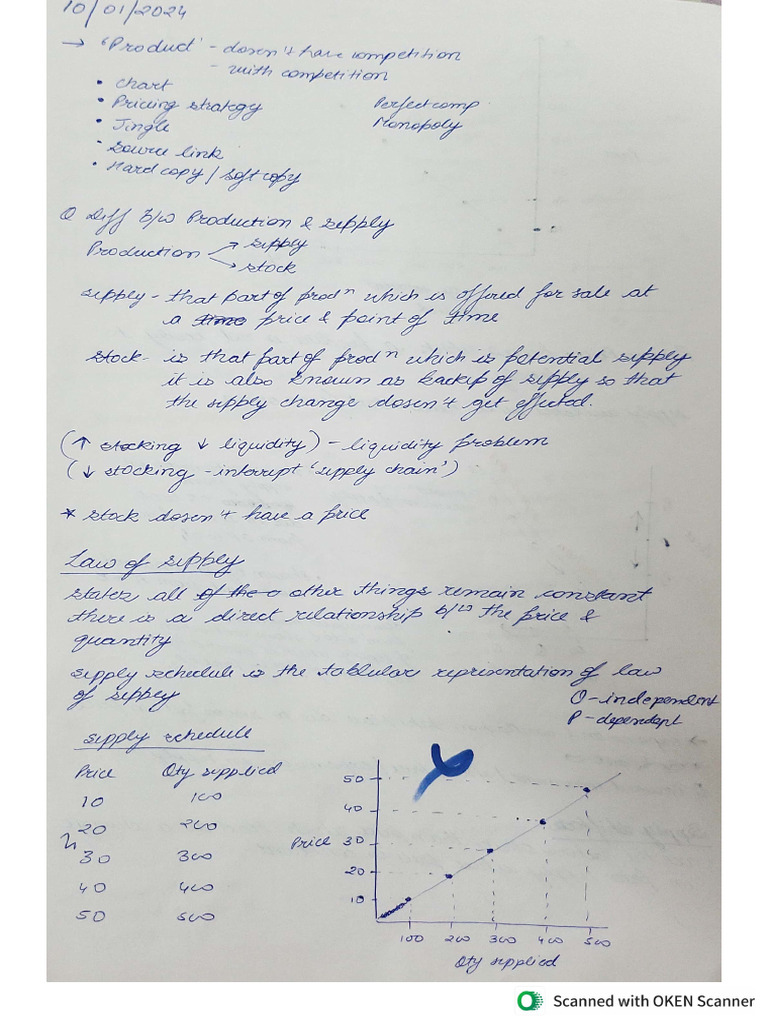 10/01/2024
→ 'Product' - dosen't have competition
- with competition
• chart
• Pricing strategy Perfect comp
• Jingle Monopoly
• source link
• Hard copy / soft copy
Q Diff b/w Production & supply
Production → supply
→ stock
supply - that part of prodⁿ which is offired for sale at
a time price & point of time
stock - is that part of prodⁿ which is potential supply
it is also known as backup of supply so that
the supply change dosen't get effected.
(↑ stocking ↓ liquidity) - liquidity problem
(↓ stocking - interrupt 'supply chain')
* stock dosen't have a price
Law of supply
states all of the o other things remain constant
there is a direct relationship b/w the price &
quantity
supply schedule is the tablular representation of law
of supply
Q - independent
P - dependent
supply schedule
Price Qty supplied
10 100
20 200
30 300
40 400
50 500
50
40
Price 30
20
10
100 200 300 400 500
Qty supplied
Scanned with OKEN Scanner